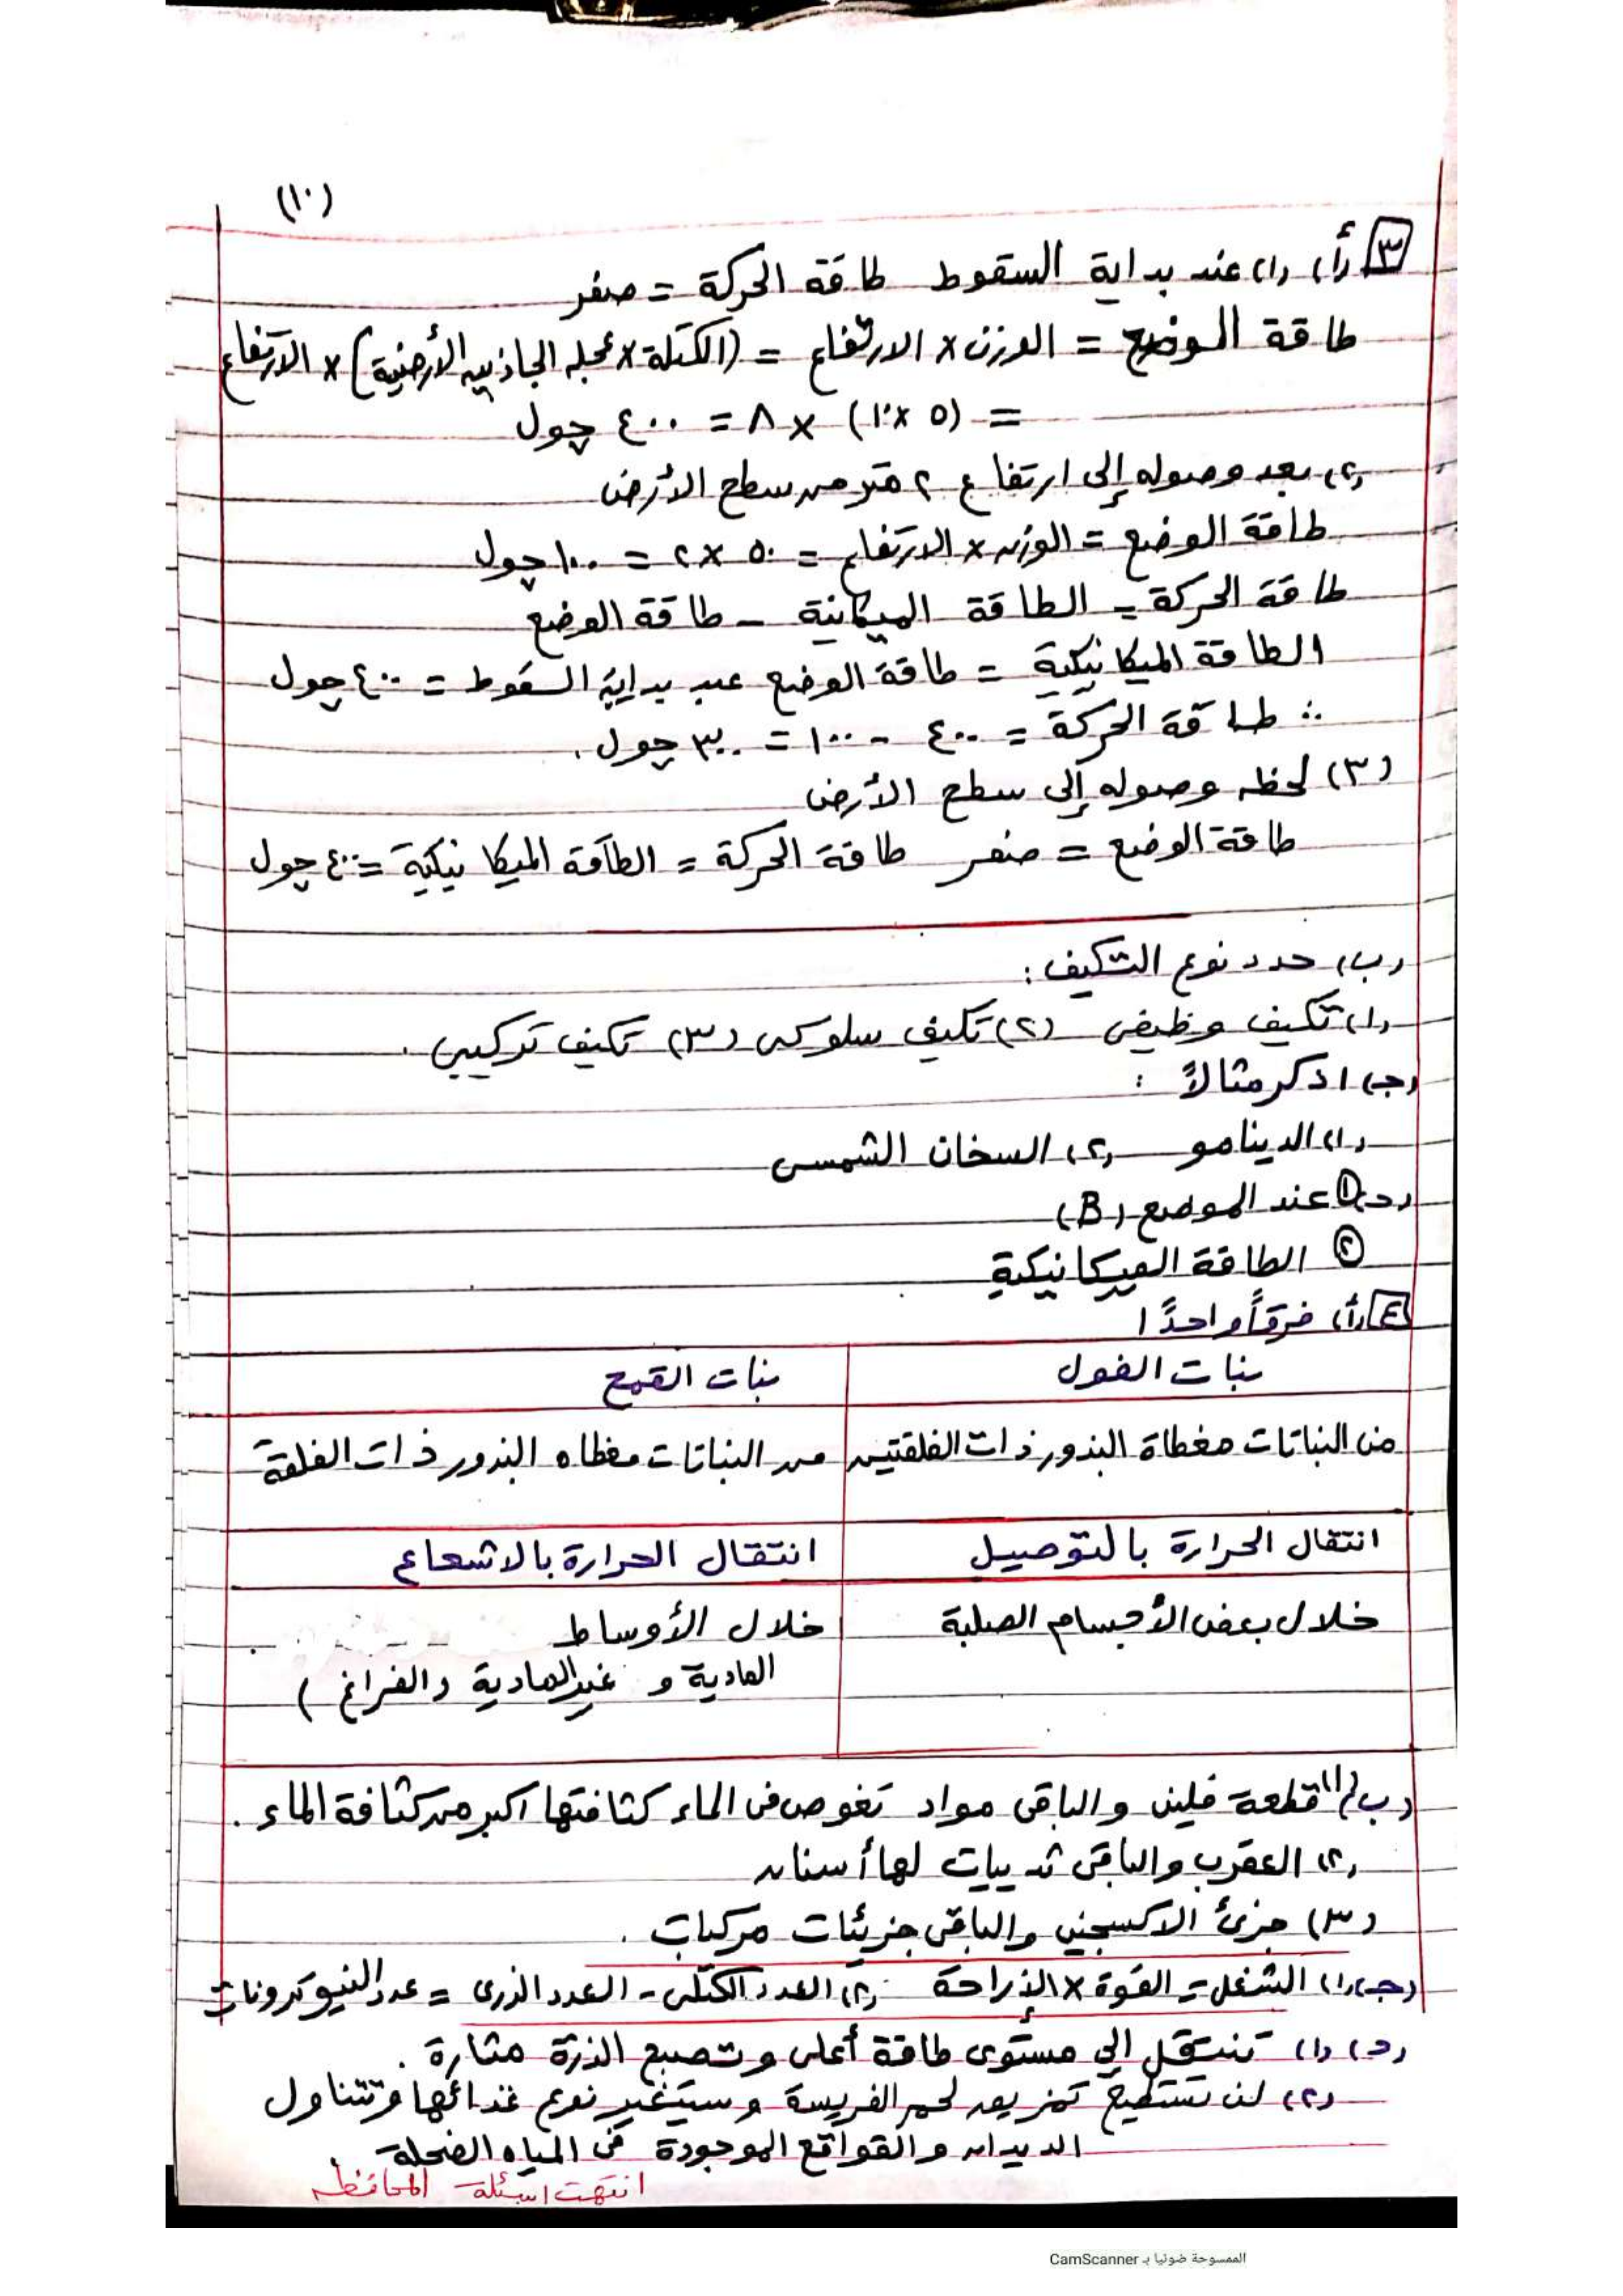 (١٠)
٣ (أ) (١) عند بداية السقوط طاقة الحركة = صفر
طاقة الوضع = الوزن × الارتفاع = (الكتلة × عجلة الجاذبية الأرضية) × الارتفاع
= (٥ × ١٠) × ٨ = ٤٠٠ چول
(٢) بعد وصوله إلى ارتفاع ٢ متر من سطح الأرض
طاقة الوضع = الوزن × الارتفاع = ٥٠ × ٢ = ١٠٠ چول
طاقة الحركة = الطاقة الميكانية - طاقة الوضع
الطاقة الميكانيكية = طاقة الوضع عند بداية السقوط = ٤٠٠ چول
∴ طاقة الحركة = ٤٠٠ - ١٠٠ = ٣٠٠ چول .
(٣) لحظه وصوله إلى سطح الأرض
طاقة الوضع = صفر طاقة الحركة = الطاقة الميكانيكية = ٤٠٠ چول
(ب) حدد نوع التكيف :
(١) تكيف وظيفى (٢) تكيف سلوكى (٣) تكيف تركيبى .
(جـ) اذكر مثالاً :
(١) الدينامو (٢) السخان الشمسى
(د) ① عند الموضع (B)
② الطاقة الميكانيكية
٤ (أ) فرقاً واحدًا
نبات الفول نبات القمح
من النباتات مغطاة البذور ذات الفلقتين من النباتات مغطاه البذور ذات الفلقة
انتقال الحرارة بالتوصيل انتقال الحرارة بالاشعاع
خلال بعض الأجسام الصلبة خلال الأوساط
المادية و غير المادية (الفراغ)
(ب) (١) قطعة فلين والباقى مواد تغوص فى الماء كثافتها اكبر من كثافة الماء .
(٢) العقرب والباقى ثدييات لها أسنان
(٣) جزئ الاكسجين والباقى جزيئات مركبات .
(جـ) (١) الشغل = القوة × الإزاحة (٢) العدد الكتلى - العدد الذرى = عدد النيوترونات
(د) (١) تنتقل إلى مستوى طاقة أعلى وتصبح الذرة مثارة .
(٢) لن تستطيع تمزيق لحم الفريسة وستغير نوع غذائها وتتناول
الديدان والقواقع الموجودة فى المياه الضحلة
انتهت اسئلة المحافظه
الممسوحة ضوئيا بـ CamScanner